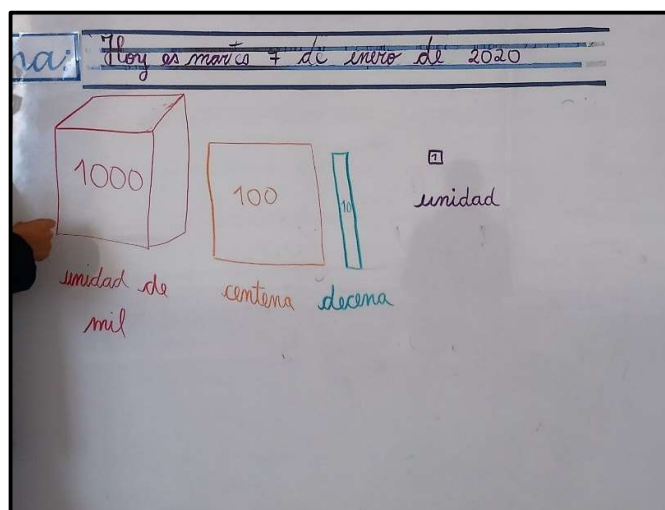 na:
Hoy es martes 7 de enero de 2020
1000
100
10
1
unidad de
mil
centena
decena
unidad